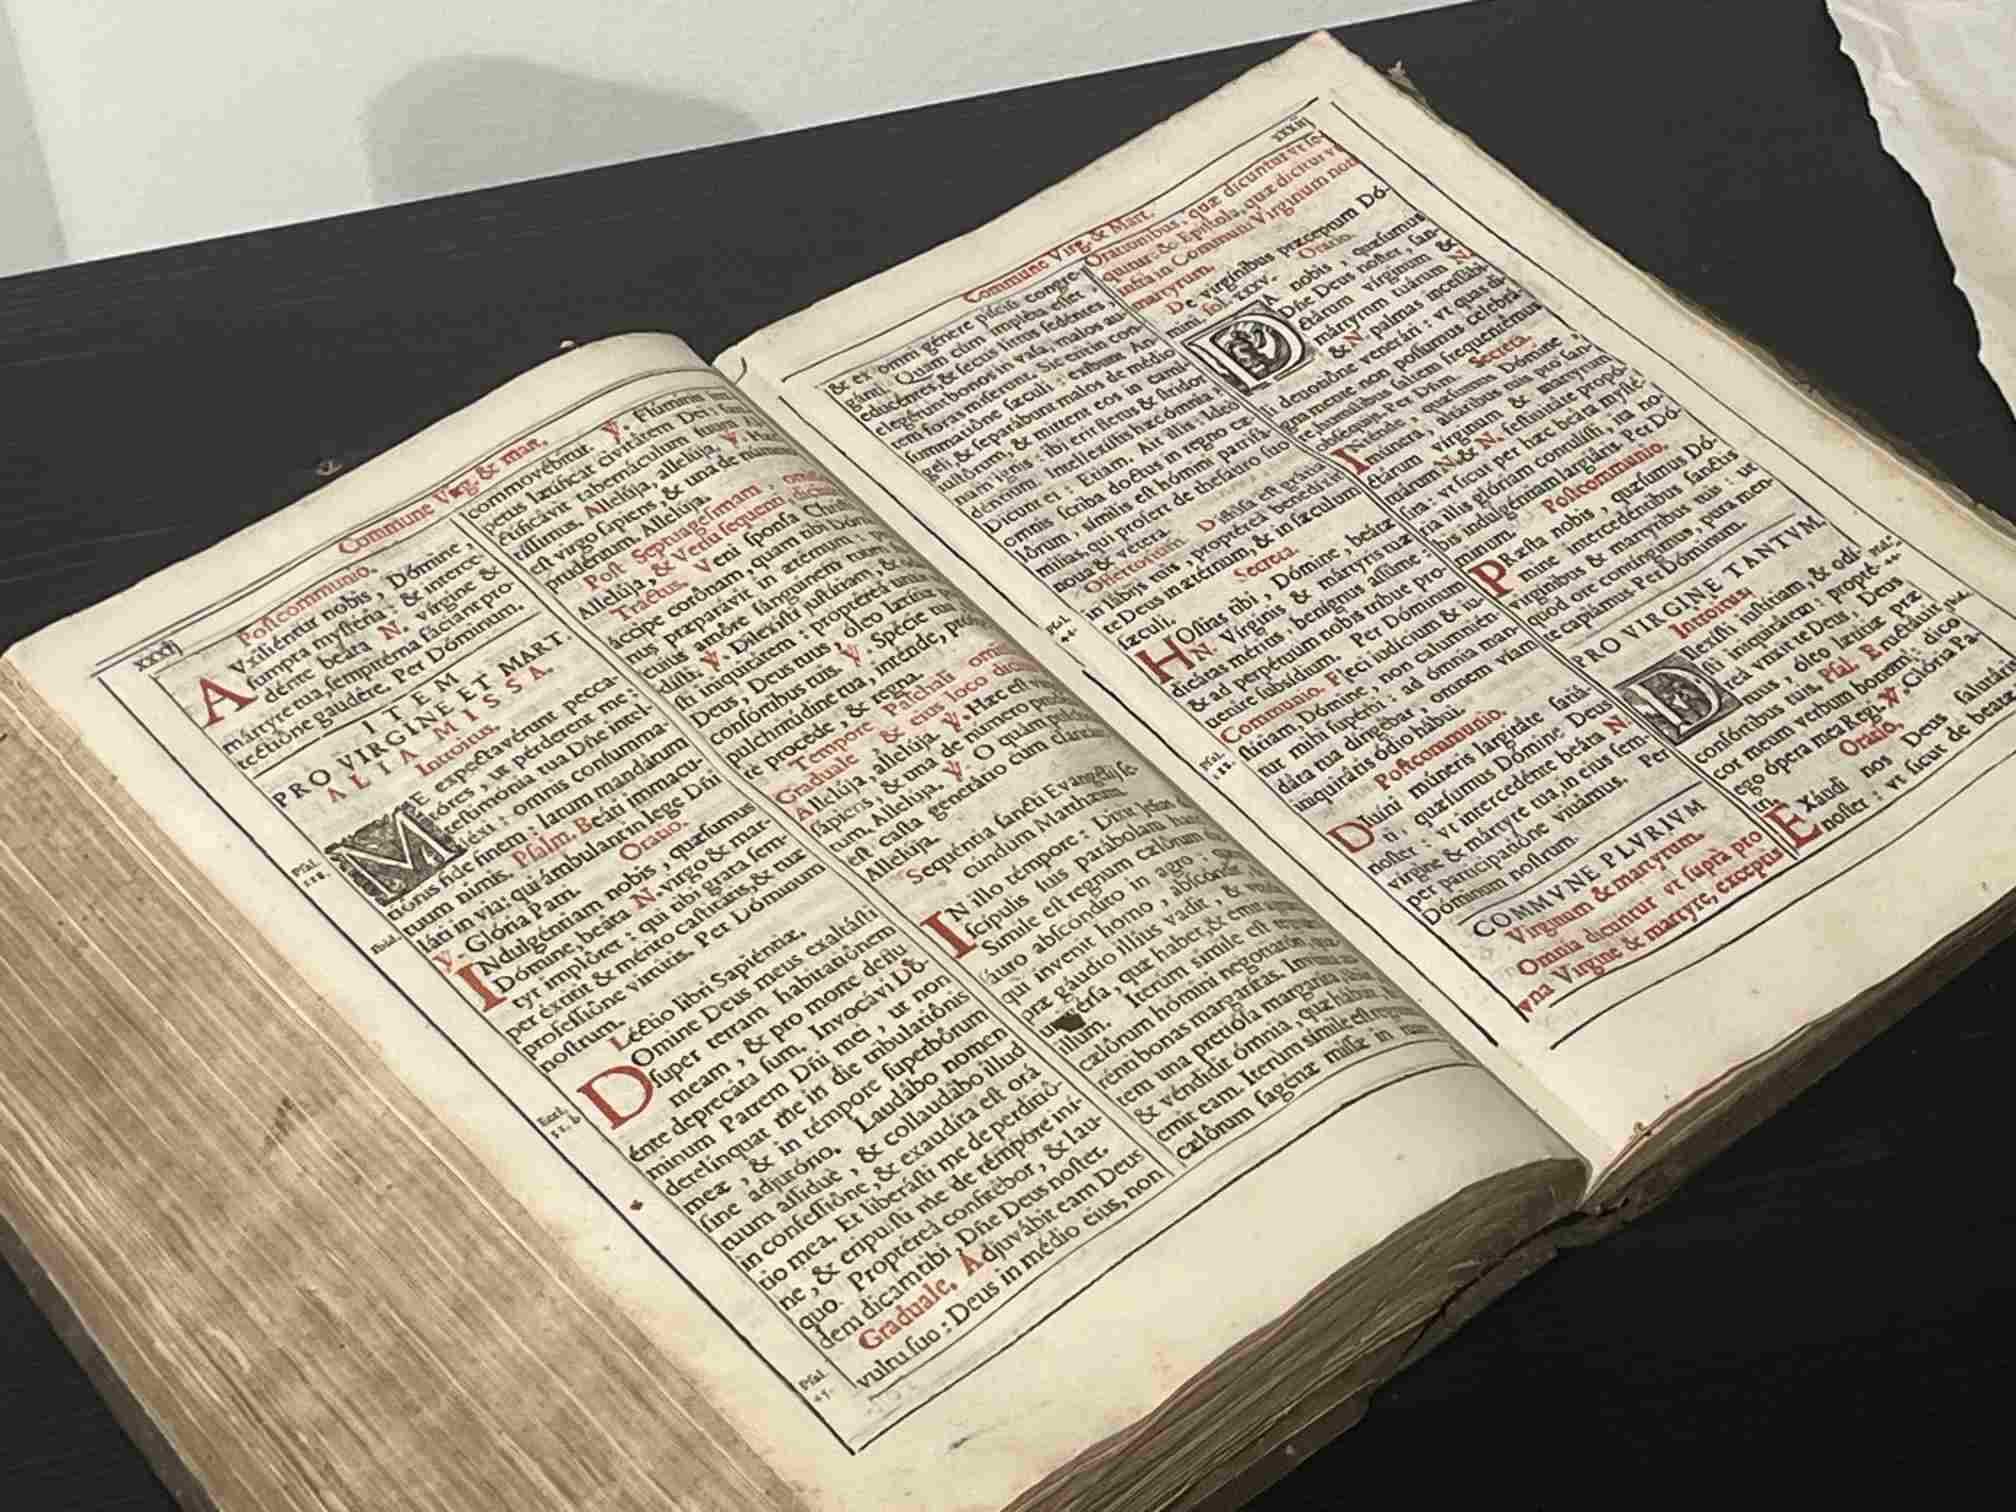 Commune Virg. & mart.
Postcommunio.
AVxiliéntur nobis, Dómine,
sumpta mystéria: & interce-
dénte beáta N. vírgine &
mártyre tua, sempitérna fáciant pro-
tectióne gaudére. Per Dóminum.
ITEM
PRO VIRGINE ET MART.
ALIA MISSA.
Introitus.
ME expectavérunt pecca-
tóres, ut pérderent me:
testimónia tua Dñe intel-
léxi: omnis consumma-
tiónis fidē finem: latum mandátum
tuum nimis. Psalm. Beáti immacu-
láti in via: qui ámbulant in lege Dñi
℣. Glória Patri.
Oratio.
INdulgéntiam nobis, quǽsumus
Dómine, beáta N. virgo & mar-
tyr implóret: qui tibi grata sem-
per éxtitit & mérito castitátis, & tuæ
professióne virtútis. Per Dóminum
nostrum.
Léctio libri Sapiéntiæ.
DOmine Deus meus exaltásti
super terram habitatiónem
meam, & pro morte defluē-
énte deprecáta sum. Invocávi Dó-
minum Patrem Dñi mei, ut non
derelínquat me in die tribulatiónis
meæ, & in témpore superbórum
sine adjutório. Laudábo nomen
tuum assídue, & collaudábo illud
in confessióne, & exaudíta est orá-
tio mea. Et liberásti me de perditió-
ne, & eripuísti me de témpore iní-
quo. Proptereà confitébor, & lau-
dem dicam tibi, Dñe Deus noster.
Graduale. Adjuvábit eam Deus
vultu suo: Deus in médio eius, non
commovébitur. ℣. Flúminis
petus lætíficat civitátem Dei:
ctificávit tabernáculum suum
tíssimus. Allelúja, allelúja. ℣.
est virgo sápiens, & una de número
prudéntum. Allelúja.
Post Septuagesimam,
Allelúja, & Versu sequenti
Tractus. Veni sponsa Christi
áccipe corónam, quam tibi Dómi-
nus præparávit in ætérnum:
cuius amóre sánguinem
dísti. ℣. Dilexísti justítiam, &
sti iniquitátem: proptereà unxit
Deus, Deus tuus, óleo lætítiæ
consórtibus tuis. ℣. Spécie tua
pulchritúdine tua, inténde,
re procéde, & regna.
Tempore Paschali
Graduale & eius loco
Allelúja, allelúja. ℣. Hæc est
sápiens, & una de número
tum. Allelúja. ℣. O quàm
est casta generátio cum claritáte
Allelúja.
Sequéntia sancti Evangélij se-
cúndum Matthæum.
IN illo témpore: Dixit Jesus
scípulis suis parábolam
Símile est regnum cælórum
sáuro abscóndito in agro:
qui invénit homo, abscóndit,
præ gáudio illíus vadit, &
univérsa, quæ habet, & emit
illum. Iterum símile est regnum
cælórum hómini negotiatóri,
rénti bonas margarítas. Inventa
tem una pretiósa margaríta,
& véndidit ómnia, quæ hábuit
emit eam. Iterum símile est regnum
cælórum sagénæ missæ in mare
Commune Virg. & Mart.
xxxiij
& ex omni génere píscium congre-
gánti. Quam cùm impléta esset,
educéntes, & secus litus sedéntes,
elegérunt bonos in vasa, malos au-
tem foras misérunt. Sic erit in con-
summatióne sǽculi: exíbunt An-
geli, & separábunt malos de médio
iustórum, & mittent eos in camí-
num ignis: ibi erit fletus & stridor
déntium. Intellexístis hæc ómnia?
Dicunt ei: Etiam. Ait illis: Ideò
omnis scriba doctus in regno cæ-
lórum, símilis est hómini patrifa-
mílias, qui profert de thesáuro suo
nova & vétera.
Offertorium. Diffúsa est grátia
in lábijs tuis, proptéreà benedíxit
te Deus in ætérnum, & in sǽculum
sǽculi.
Secreta.
HOstias tibi, Dómine, beátæ
N. Vírginis & mártyris tuæ
dicátas méritis, benígnus assúme:
& ad perpétuum nobis tríbue pro-
veníre subsídium. Per Dóminum
Communio. Feci iudícium & iu-
stítiam Dómine, non calumnién-
tur mihi supérbi: ad ómnia man-
dáta tua dirigébar, omnem viam
iniquitátis ódio hábui.
Postcommunio.
DIvíni múneris largitáte satiá-
ti, quǽsumus Dómine Deus
noster: ut intercedénte beáta N.
vírgine & mártyre tua, in eius semp
per participatióne vivámus. Per
Dóminum nostrum.
COMMVNE PLVRIVM
Virginum & martyrum.
Omnia dicuntur vt suprà pro
vna Virgine & martyre, exceptis
Orationibus, quæ dicuntur vt se-
quitur: & Epistola, quæ dicitur vt
infrà in Communi Virginum non
martyrum.
De virgínibus præcéptum Dó-
mini. fol. xxxv.
Oratio.
DA nobis, quǽsumus
Dñe Deus noster, san-
ctárum vírginum &
mártyrum tuárum N.
& N palmas incessábi-
li devotióne venerári: vt quas di-
gna mente non póssumus celebrá-
re, humílibus saltem frequentémus
obséquijs. Per Dñm.
Secreta.
INténde, quǽsumus Dómine,
múnera, altáribus tuis pro san-
ctárum Vírginum & mártyrum
tuárum N. & N. festivitáte propó-
sita: vt sicut per hæc beáta mysté-
ria illis glóriam contulísti, ita no-
bis indulgéntiam largiáris. Per Dó-
minum.
Postcommunio.
PRæsta nobis, quǽsumus Dó-
mine intercedéntibus sanctis
virgínibus & martýribus tuis: ut
quod ore contíngimus, pura men-
te capiámus. Per Dóminum.
PRO VIRGINE TANTVM.
Introitus.
DIlexísti iustítiam, & odí-
sti iniquitátem: proptē-
reà vnxit te Deus, Deus
tuus, óleo lætítiæ præ
consórtibus tuis. Psal. Eructávit
cor meum verbum bonum: dico
ego ópera mea Regi. ℣. Glória Pa-
tri.
Oratio.
EXáudi nos Deus salutáris
noster: vt sicut de beátæ